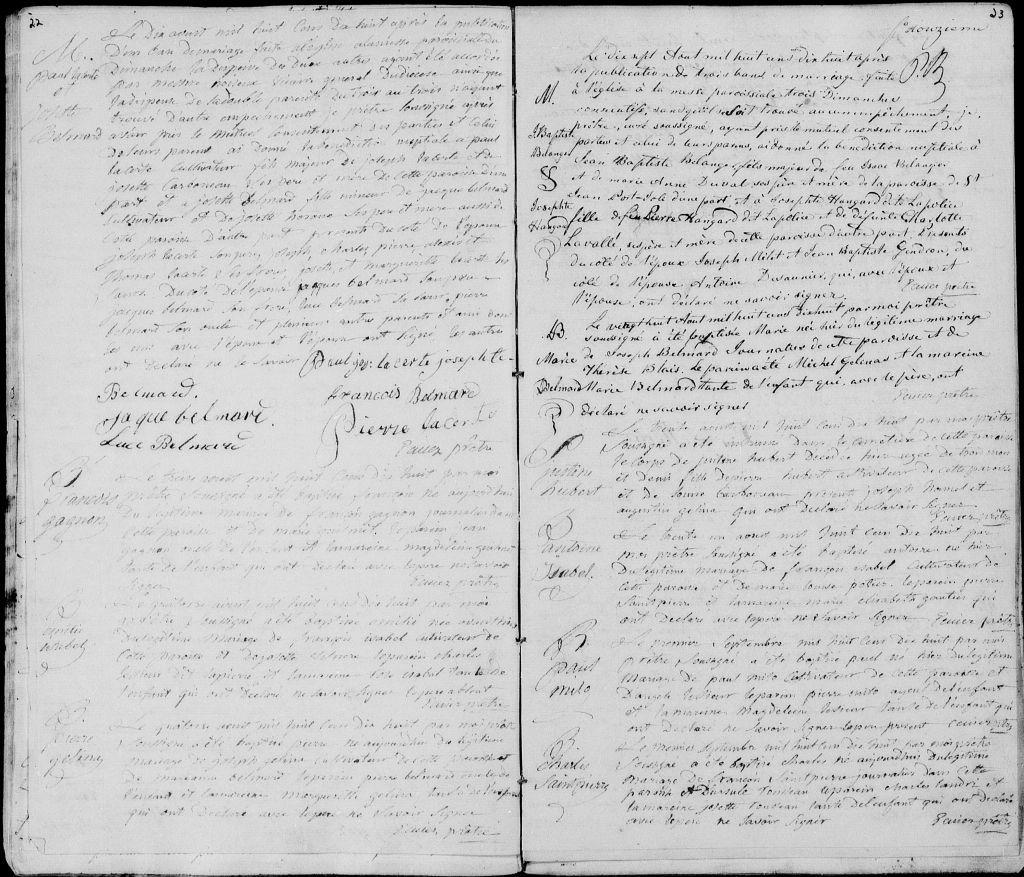 22
M.
Paul lacerte
et
Josette
Belmard
Le Dix aoust mil huit Cens dix huit après la publication
D'un ban de mariage faite
Dimanche la dispense Du Deux autres ayant été accordée
par vicaire general Du diocese ainsi que
la dispense de la double parenté Du trois au trois n'ayant
trouvé D'autre empechement je prêtre Soussigné après
avoir pris le mutuel Consentement Des parties et Celui
De leurs parens ai Donné la benediction nuptiale a paul
lacerte Cultivateur fils majeur de joseph lacerte et de
josette ses pere et mere de Cette paroisse D'une
part et a josette belmard fille mineur de jacque belmard
Cultivateur et de josette ses pere et mere aussi de
Cette paroisse D'autre part presents Du coté de l'epoux
joseph lacerte Son pere, joseph, charles, pierre, alexis et
thomas lacerte Ses freres, josette, et marguerite lacerte Ses
Soeurs Du coté De l'epouse jacques belmard Son pere
jacques belmard Son frere, luce belmard Sa Soeur, pierre
belmard Son oncle et plusieurs autres parents et amis dont
les uns avec l'epoux et l'epouse ont Signé les autres
ont Declaré ne le Savoir Paul lacerte joseph
Belmard. francois Belmare
Jaque belmare Pierre lacerte
Luce Belmard
prêtre
B
François
gagnon
Le treize aoust mil huit Cens dix huit par moi
prêtre Soussigné a été baptisé François né aujourd'hui
Du légitime mariage de François gagnon journalier de
Cette paroisse et de marie le parein jean
gagnon oncle de l'enfant et la mareine magdeleine
tante de l'enfant qui ont declaré avec le pere ne Savoir
Signer
prêtre
B
Isabel
Le quatorze aoust mil huit Cens Dix huit par moi
prêtre Soussigné a été baptisé
Du légitime mariage de François isabel Cultivateur de
Cette paroisse et de josette le parein charles
et la mareine isabel tante de
l'enfant qui ont Declaré ne Savoir Signer le pere absent
prêtre
B.
Pierre
gelina
Le quatorze aoust mil huit Cens dix huit par moi prêtre
Soussigné a été baptisé pierre né aujourd'hui du légitime
mariage de joseph gelina Cultivateur de Cette paroisse et
de belmard le parein pierre belmard oncle de
l'enfant et la mareine marguerite gelina tante de l'enfant
qui ont Declaré avec le pere ne Savoir Signer
prêtre
23
douzieme
M.
J. Baptiste
Belanger
&
Josephte
Hangard
Le dix sept Aout mil huit cens dix huit après
la publication de trois bans de mariage faite
à l'église à la messe paroissiale trois Dimanches
consécutifs, sans qu'il se soit trouvé aucun empêchement, je
prêtre, curé soussigné, ayant pris le mutuel consentement des
parties et celui de leurs parens, ai donné la bénédiction nuptiale à
Jean Baptiste Belanger fils majeur de feu Isaac Belanger
et de marie Anne Duval ses père et mère de la paroisse de St
Jean Port-Joli d'une part, et à Josephte Hangard dite Lapolice
fille de feu Pierre Hangard dit Lapolice et de défunte Charlotte
Lavallé, ses père et mère de cette paroisse d'autre part. Présents
du côté de l'époux Joseph Milot et Jean Baptiste Gendron, du
côté de l'épouse Antoine Desaunier, qui, avec l'époux et
l'épouse, ont déclaré ne savoir signer.
prêtre
B.
Marie
Belmard
Le vingt huit Aout mil huit cens dix huit par moi prêtre
soussigné à été baptisée Marie née hier du légitime mariage
de Joseph Belmard Journalier de cette paroisse et de
Thérèse Blais. Le parein a été Michel Gelinas et la mareine
Marie Belmard tante de l'enfant qui, avec le père, ont
déclaré ne savoir signer
prêtre
S
hubert
Le trente aoust mil huit Cens dix huit par moi prêtre
Soussigné a été inhumé Dans le cimetiere de cette paroisse
le corps de hubert Décédé hier agé de trois mois
et demi fille de pierre hubert Cultivateur de cette paroisse
et de present joseph hamel et
augustin gelina qui ont Declaré ne Savoir Signer
prêtre
B
antoine
Isabel.
Le trente un aoust mil huit Cens Dix huit par
moi prêtre Soussigné a été baptisé antoine né hier
Du légitime mariage de François isabel Cultivateur de
Cette paroisse et De marie louise potier le parein pierre
Saintpierre et la mareine marie elisabeth gautier qui
ont Declaré avec le pere ne Savoir Signer prêtre
B.
paul
milo
Le premier Septembre mil huit Cens Dix huit par moi
prêtre Soussigné a été baptisé paul né hier Du légitime
Mariage de paul milo Cultivateur de Cette paroisse et
D'angele le parein pierre milo ayeul de l'enfant
et la mareine magdeleine tante de l'enfant qui
ont Declaré ne Savoir Signer le pere present prêtre
B.
Charles
Saintpierre
Le premier Septembre mil huit Cens dix huit par moi prêtre
Soussigné a été baptisé charles né aujourd'hui Du légitime
mariage de François Saintpierre journalier dans Cette
paroisse et D'ursule le parein charles landri et
la mareine josette tante de l'enfant qui ont Declaré
avec le pere ne Savoir Signer prêtre